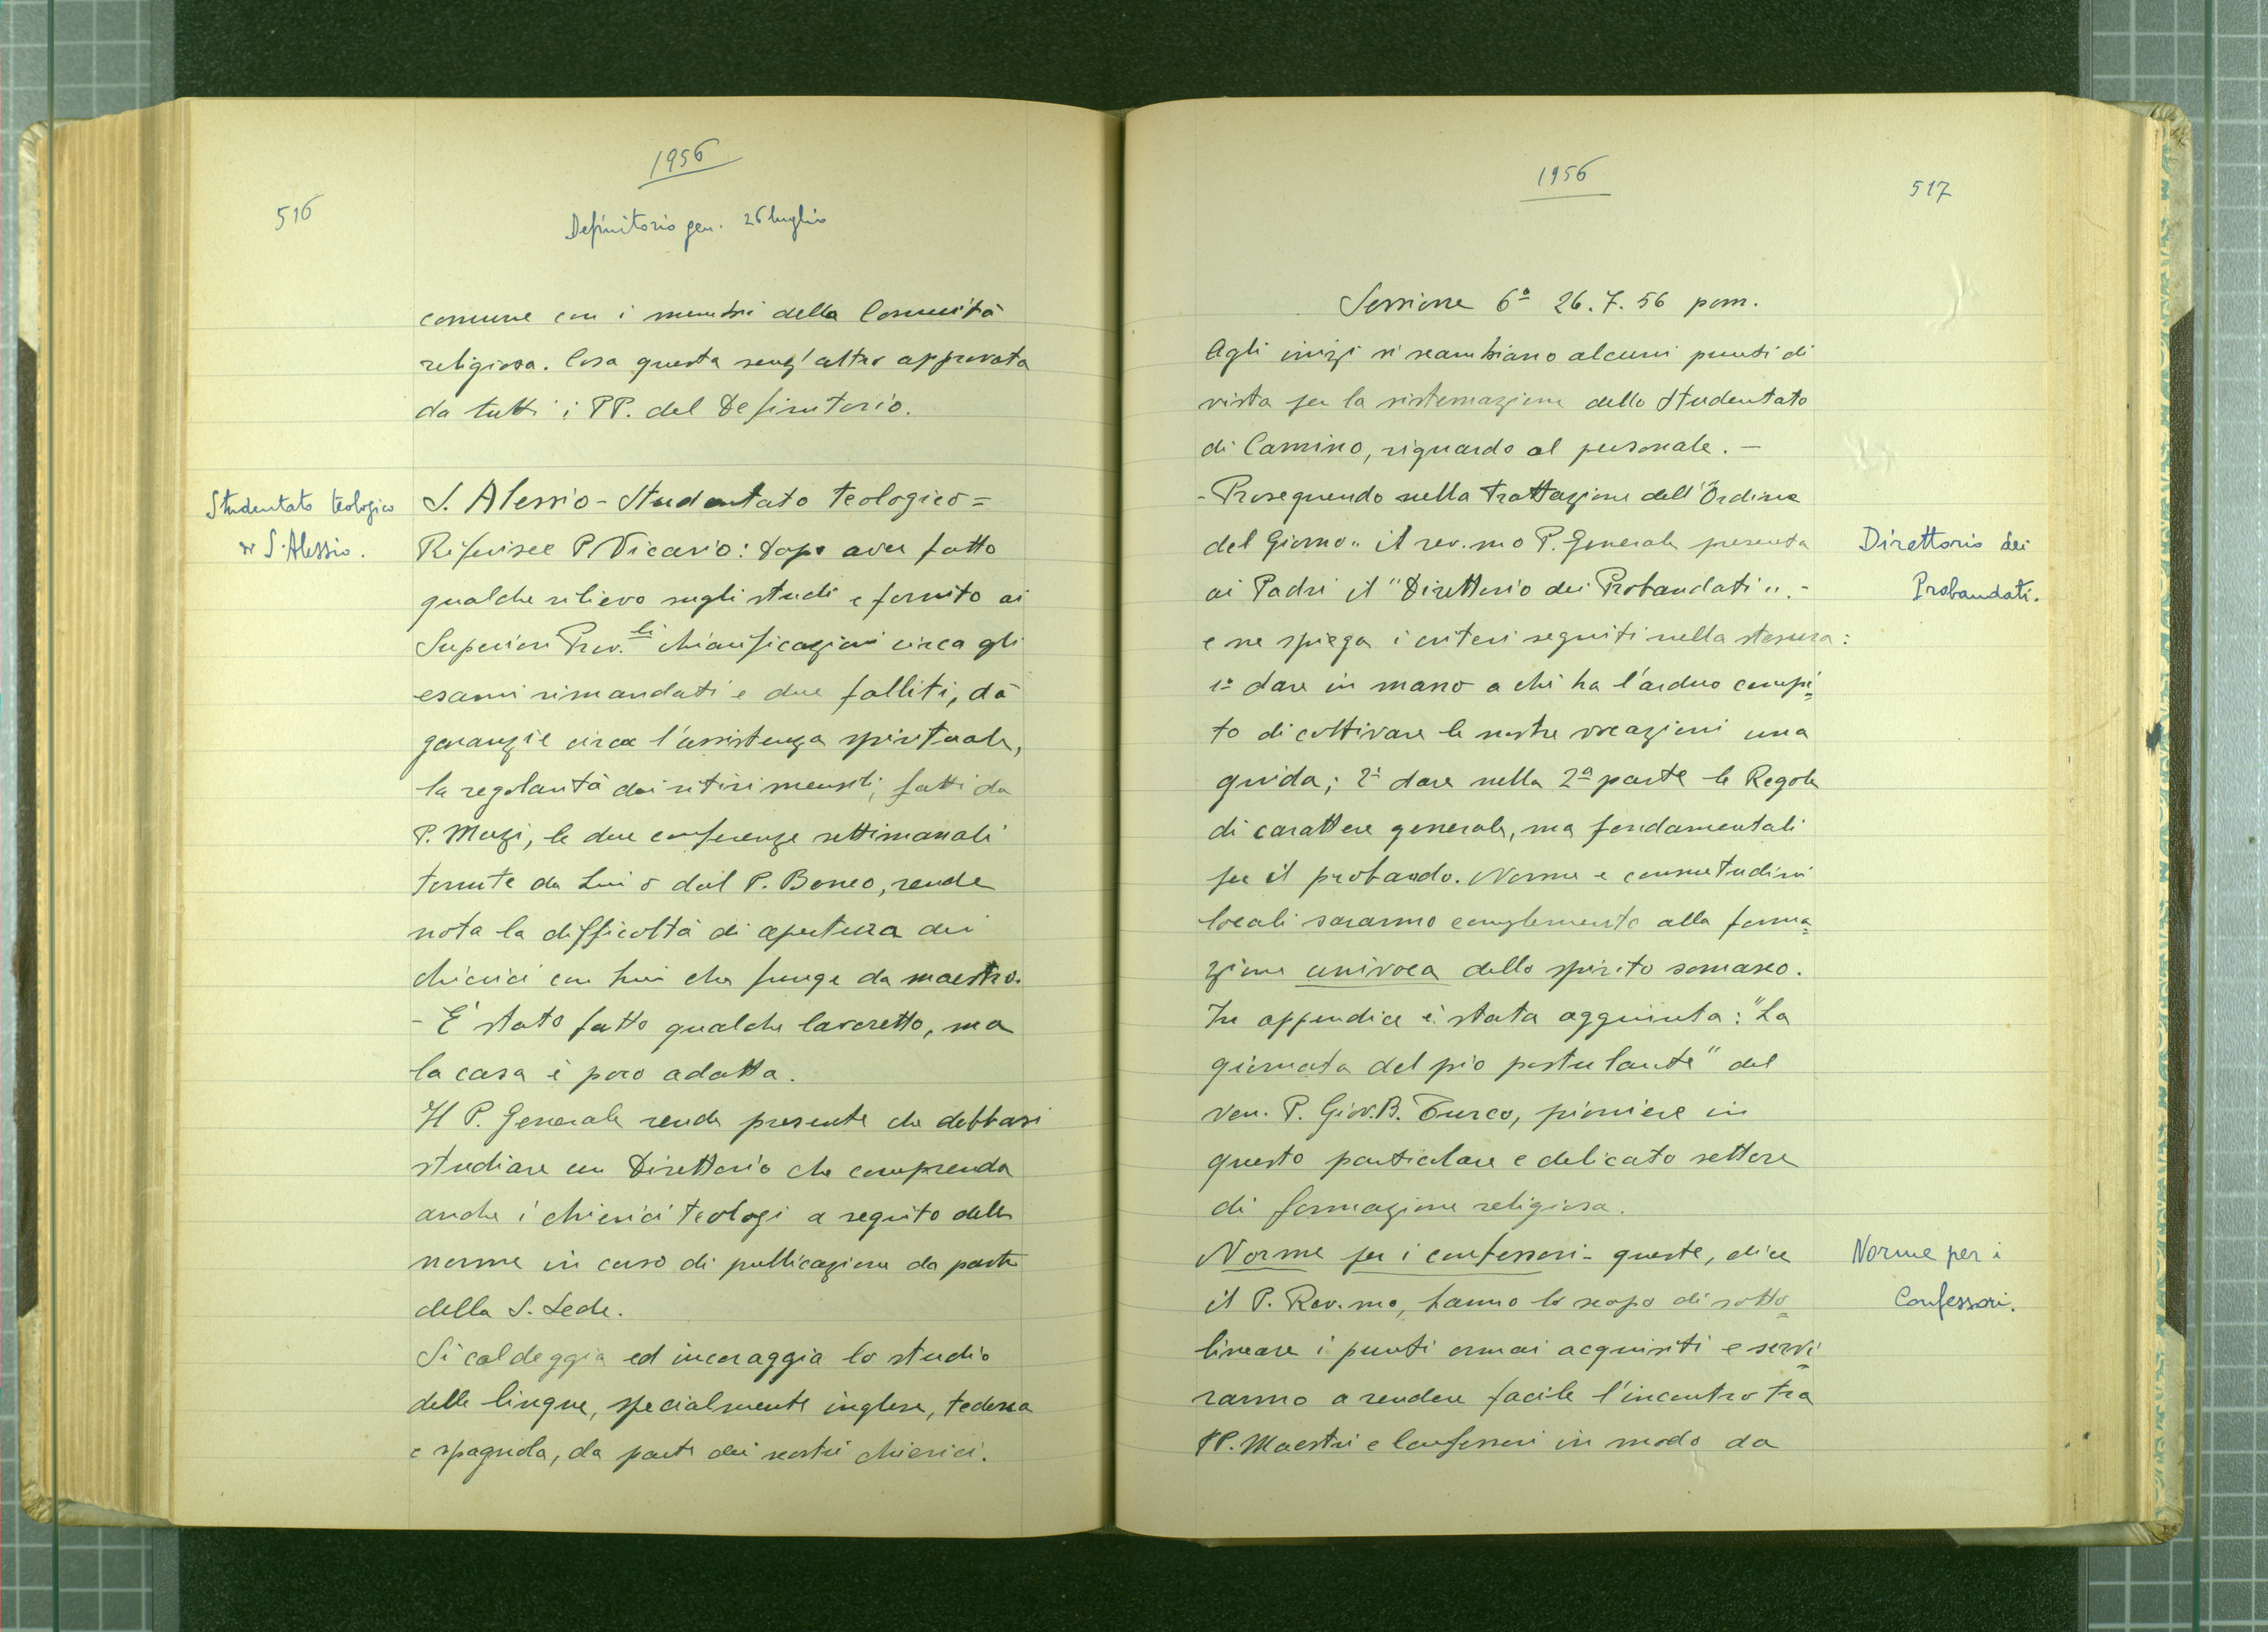 1956
516
Definitorio gen. 26 luglio
comune con i membri della Comunità
religiosa. Cosa questa senz'altro approvata
da tutti i PP. del Definitorio.
Studentato teologico
S. Alessio.
S. Alessio - Studentato teologico =
Riferisce P. Vicario: dopo aver fatto
qualche rilievo sugli studi e fornito ai
Superiori Prov.li chiarificazioni circa gli
esami rimandati e due falliti, dà
garanzie circa l'assistenza spirituale,
la regolarità dei ritiri mensili, fatti da
P. Muzi, le due conferenze settimanali
tenute da Lui o dal P. Boneo, rende
nota la difficoltà di apertura dei
chierici con Lui che funge da maestro.
- E' stato fatto qualche lavoretto, ma
la casa è poco adatta.
Il P. Generale rende presente che debbasi
studiare un Direttorio che comprenda
anche i chierici teologi a seguito delle
norme in corso di pubblicazione da parte
della S. Sede.
Si caldeggia ed incoraggia lo studio
delle lingue, specialmente inglese, tedesca
e spagnola, da parte dei nostri chierici.
1956
517
Sessione 6ª 26.7.56 pom.
Agli inizi si scambiano alcuni punti di
vista per la sistemazione dello Studentato
di Camino, riguardo al personale. -
- Proseguendo nella trattazione dell'"Ordine
del Giorno" il rev.mo P. Generale presenta
ai Padri il "Direttorio dei Probandati". -
e ne spiega i criteri seguiti nella stesura:
1º dare in mano a chi ha l'arduo compi=
to di coltivare le nostre vocazioni una
guida; 2º dare nella 2ª parte le Regole
di carattere generale, ma fondamentali
per il probando. Norme e consuetudini
locali saranno complemento alla forma=
zione univoca dello spirito somasco.
In appendice è stata aggiunta: "La
giornata del pio postulante" del
ven. P. Giov.B. Turco, pioniere in
questo particolare e delicato settore
di formazione religiosa.
Norme per i confessori - queste, dice
il P. Rev.mo, hanno lo scopo di sotto=
lineare i punti ormai acquisiti e servi=
ranno a rendere facile l'incontro tra
PP. Maestri e Confessori in modo da
Direttorio dei
Probandati.
Norme per i
Confessori.